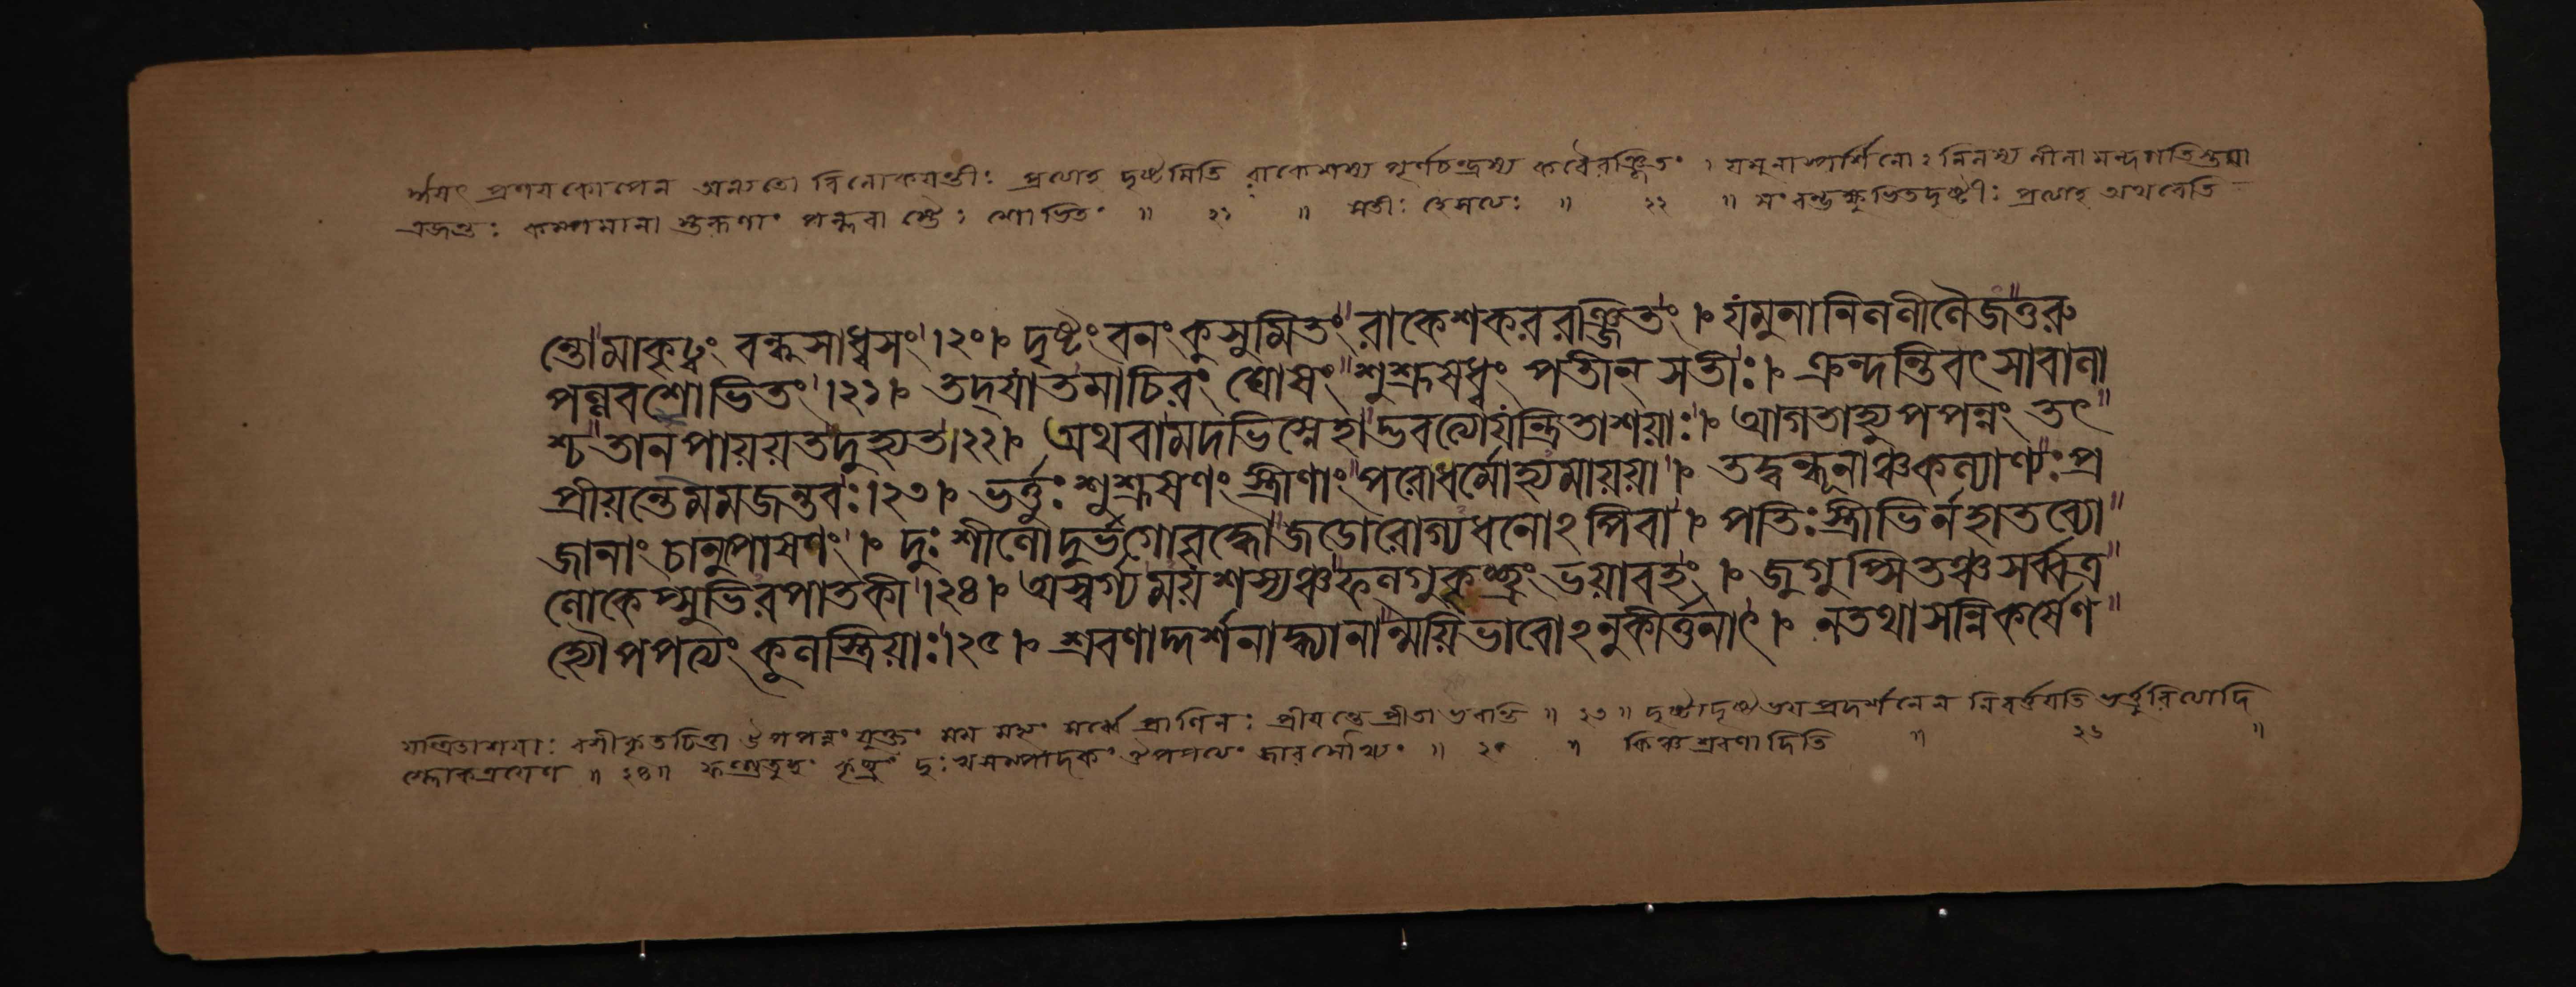 র্ষয়ৎ প্রণয়কোপেন অন্যতো বিলোকয়ন্তীঃ প্রত্যাহ দৃষ্টমিতি রাকেশস্য পূর্ণচন্দ্রস্য করৈরঞ্জিতং । যমুনাস্পর্শিনোঽনিলস্য লীলা মন্দগতিস্তয়া
এজন্তঃ কম্পমানা স্তরূণাং পল্লবা স্তৈঃ শোভিতং ॥ ২১ ॥ সতীঃ হেসত্যঃ ॥ ২২ ॥ সংরম্ভক্ষুভিতদৃষ্টীঃ প্রত্যাহ অথবেতি
ন্তোমাকৃঢ্বং বন্ধুসাধ্বসং।২০। দৃষ্টংবনংকুসুমিতংরাকেশকররঞ্জিতং। যমুনানিললীলৈজত্তরু
পল্লবশোভিতং।২১। তদ্যাতমাচিরং ঘোষংশুশ্রূষধ্বং পতীন্ সতীঃ। ক্রন্দন্তিবৎসাবালা
শ্চতান্পায়য়তদুহ্যত।২২। অথবামদভিস্নেহাদ্ভবত্যোযন্ত্রিতাশয়াঃ। আগতাহ্যুপপন্নং তৎ
প্রীয়ন্তেমমজন্তবঃ।২৩। ভর্ত্তুঃশুশ্রূষণংস্ত্রীণাংপরোধর্মোহ্যমায়য়া। তদ্বন্ধূনাঞ্চকল্যাণ্যঃপ্র
জানাং চানুপোষণং। দুঃশীলোদুর্ভগোবৃদ্ধোজডোরোগ্যধনোঽপিবা। পতিঃস্ত্রীভির্নহাতব্যো
লোকেপ্সুভিরপাতকী।২৪। অস্বর্গ্যময়শস্যঞ্চফল্গুকৃচ্ছ্রংভয়াবহং। জুগুপ্সিতঞ্চসর্ব্বত্র
হ্যৌপপত্যংকুলস্ত্রিয়াঃ।২৫। শ্রবণাদ্দর্শনাদ্ধ্যানান্ময়িভাবোঽনুকীর্ত্তনাৎ। নতথাসন্নিকর্ষেণ
যন্ত্রিতাশয়াঃ বশীকৃতচিত্তা উপপন্নং যুক্তং মম মহ্যং সর্ব্বে প্রাণিনঃ প্রীয়ন্তে প্রীতা ভবন্তি ॥ ২৩ ॥ দৃষ্টাদৃষ্টভয়প্রদর্শনেন নিবর্ত্তয়তি ভর্ত্তুরিত্যাদি
শ্লোকত্রয়েণ ॥ ২৪॥ ফল্গুতুচ্ছং কৃচ্ছ্রং দুঃখসম্পাদকং ঔপপত্যং জারসৌখ্যং ॥ ২৫ ॥ কিঞ্চ শ্রবণাদিতি ॥ ২৬ ॥